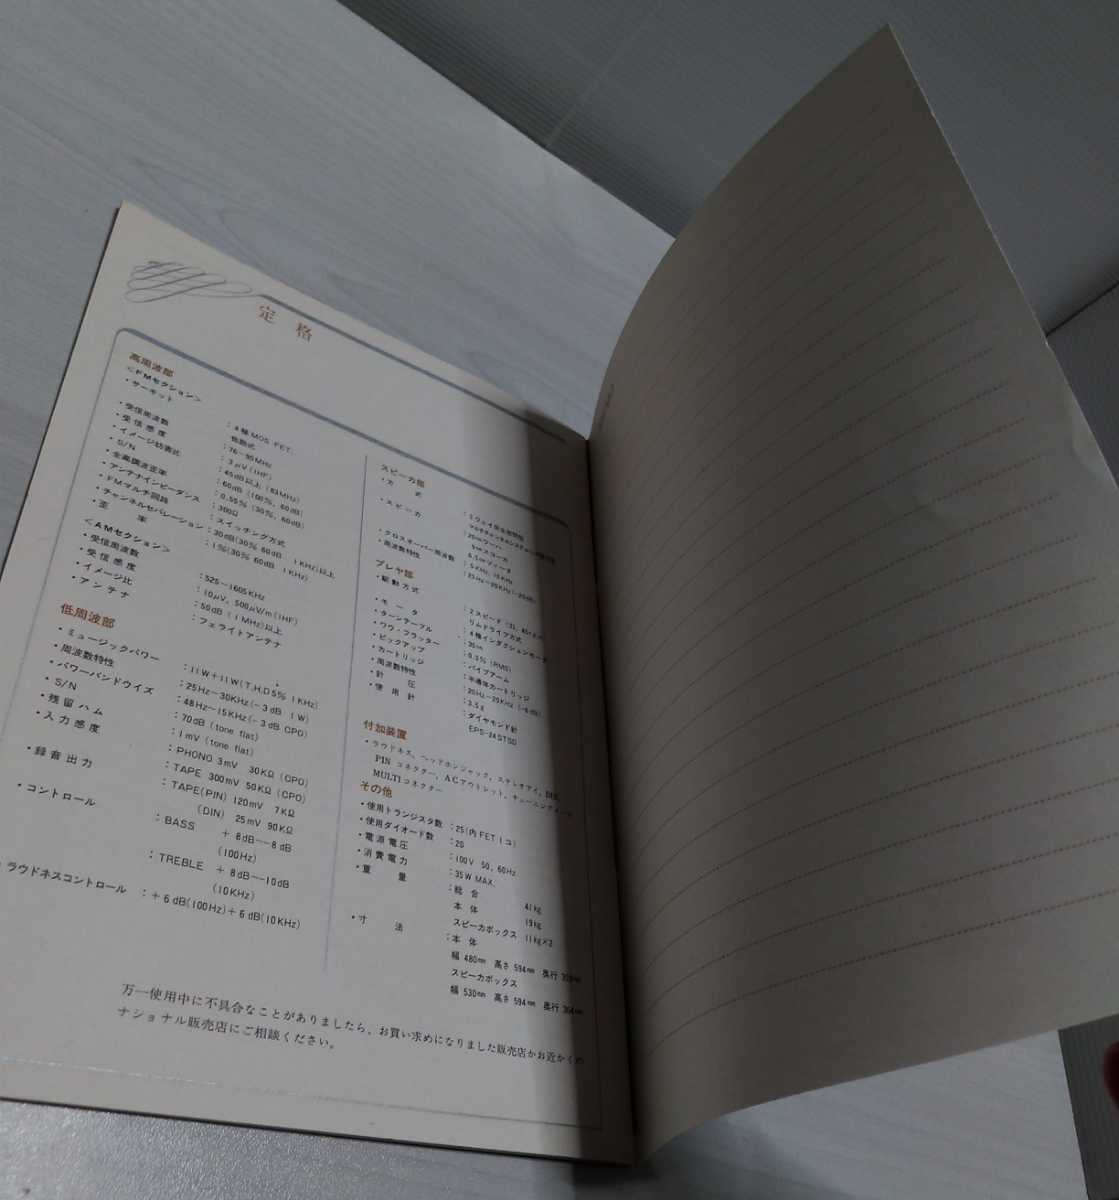 定格
高周波部
<FMセクション>
・サーキット
：4極MOS FET.
・受信周波数 ：76-90MHz
・受信感度 ：3μV(IHF)
・イメージ妨害比 ：45dB以上(83MHz)
・S/N ：60dB(100%, 60dB)
・全高調波歪率 ：0.55%(30%, 60dB)
・アンテナインピーダンス ：300Ω
・FMマルチ回路 ：スイッチング方式
・チャンネルセパレーション ：30dB(30% 60dB 1KHz)以上
・歪率 ：1%(30% 60dB 1KHz)
<AMセクション>
・受信周波数 ：525-1605KHz
・受信感度 ：10μV, 500μV/m(IHF)
・イメージ比 ：50dB(1MHz)以上
・アンテナ ：フェライトアンテナ
低周波部
・ミュージックパワー ：11W+11W(T.H.D 5% 1KHz)
・周波数特性 ：25Hz-30KHz(-3dB 1W)
・パワーバンドウイズ ：48Hz-15KHz(-3dB CPO)
・S/N ：70dB(tone flat)
・残留ハム ：1mV(tone flat)
・入力感度 ：PHONO 3mV 30KΩ(CPO)
：TAPE 300mV 50KΩ(CPO)
・録音出力 ：TAPE(PIN) 120mV 7KΩ
(DIN) 25mV 90KΩ
・コントロール ：BASS +8dB--8dB
(100Hz)
：TREBLE +8dB--10dB
(10KHz)
・ラウドネスコントロール ：+6dB(100Hz)+6dB(10KHz)
スピーカ部
・方式
・スピーカ ：20cmウーハ
・クロスオーバー周波数
・周波数特性
プレヤ部
・駆動方式
リムドライブ方式
・モータ ：4極インダクションモータ
・ターンテーブル ：30cm
・ワウ・フラッター ：0.3%(RMS)
・ピックアップ ：パイプアーム
・カートリッジ ：半導体カートリッジ
・周波数特性 ：20Hz-20KHz(-6dB)
・針圧 ：3.5g
・使用針 ：ダイヤモンド針
EPS-24STSD
付加装置
・ラウドネス、ヘッドホンジャック、ステレオアイ、
PINコネクター、ACアウトレット、チューニングメータ
MULTIコネクター
その他
・使用トランジスタ数 ：25(内FET 1コ)
・使用ダイオード数 ：20
・電源電圧 ：100V 50, 60Hz
・消費電力 ：35W MAX.
・重量 ：総合 41kg
本体 19kg
スピーカボックス 11kg×2
・寸法 ：本体
幅480mm 高さ594mm 奥行
スピーカボックス
幅530mm 高さ594mm 奥行304mm
万一使用中に不具合なことがありましたら、お買い求めになりました販売店かお近くの
ナショナル販売店にご相談ください。